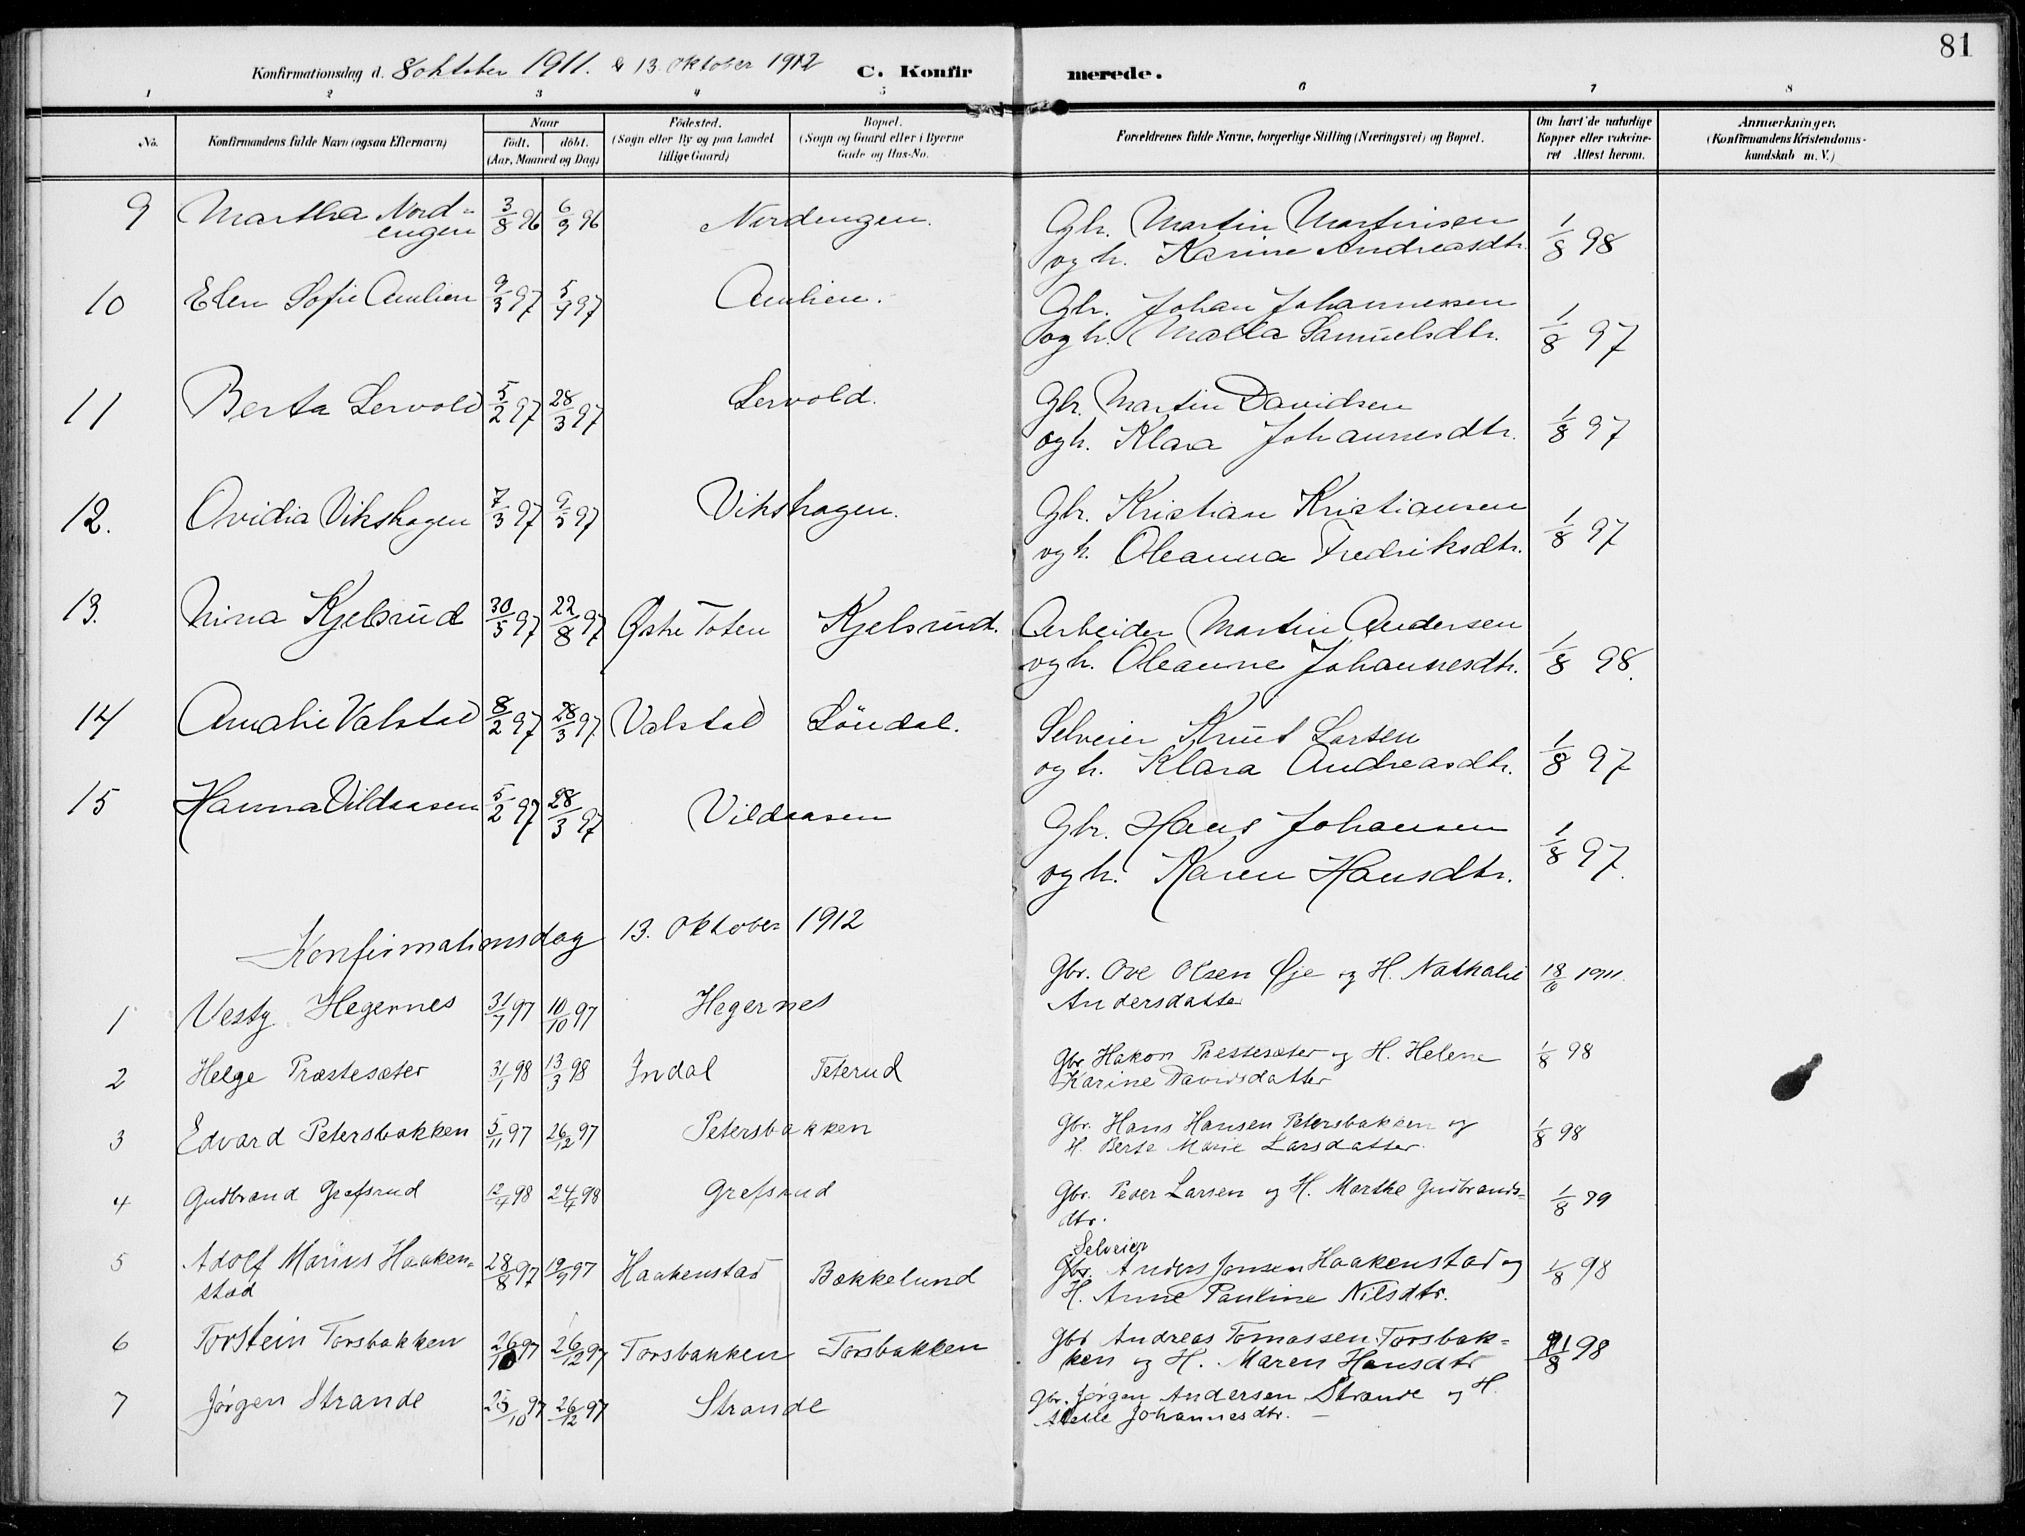 81
Konfirmationsdag d. 8 oktober 1911. & 13. oktober 1912 C. Konfirmerede.
1 2 3 4 5 6 7 8
No.
Konfirmandens fulde Navn (ogsaa Efternavn)
Naar
født. døbt.
(Aar, Maaned og Dag)
Fødested.
(Sogn eller By og paa Landet
tillige Gaard)
Bopæl.
(Sogn og Gaard eller i Byerne
Gade og Hus-No.
Forældrenes fulde Navne, borgerlige Stilling (Næringsvei) og Bopæl.
Om havt de naturlige
Kopper eller vakcine-
ret Attest herom.
Anmærkninger.
(Konfirmandens Kristendoms-
kundskab m. V.)
9 Martha Nord- 3/8 96 6/9 96 Nordengen. Gbr. Martin Martinsen 1/8 98
engen og h. Karine Andreasdtr.
10 Elen Sofie Amlien 9/3 97 5/9 97 Amlien. Gbr. Johan Johannessen 1/8 97
og h. Malla Samuelsdtr.
11 Berta Lervold 5/2 97 28/3 97 Lervold. Gbr. Martin Davidsen 1/8 97
og h. Klara Johannesdtr.
12. Ovidia Vikshagen 7/3 97 9/5 97 Vikshagen. Gbr. Kristian Kristiansen 1/8 97
og h. Oleanna Fredriksdtr.
13. Nina Kjelsrud 30/5 97 22/8 97 Østre Toten Kjelsrud. Arbeider Martin Andersen 1/8 98.
og h. Oleanne Johannesdtr.
14 Amalie Valstad 8/2 97 28/3 97 Valstad Løndal. Selveier Knut Larsen 1/8 97
og h. Klara Andreasdtr.
15 Hanna Vildaasen 5/2 97 28/3 97 Vildaasen Gbr. Hans Johansen 1/8 97.
og h. Karen Hansdtr.
Konfirmationsdag 13. Oktober 1912
1 Vesty Hegernes 31/7 97 10/10 97 Hegernes Gbr. Ove Olsen Øje og H. Nathalie 18/6 1911.
Andersdatter
2 Helge Præstesæter 31/1 98 13/3 98 Indal Teterud Gbr. Hakon Præstesæter og H. Helene 1/8 98
Karine Davidsdatter
3 Edvard Petersbakken 5/11 97 26/12 97 Petersbakken Gbr. Hans Hansen Petersbakken og 1/8 98
H. Berte Marie Larsdatter.
4 Gudbrand Grefsrud 12/4 98 24/4 98 Grefsrud Gbr. Peder Larsen og H. Marthe Gudbrands- 1/8 99
dtr.
Selveier
5 Adolf Marius Haaken- 28/8 97 19/9 97 Haakenstad Bækkelund Gbr. Anders Jonsen Haakenstad og 1/8 98
stad H. Anne Pauline Nilsdtr.
6 Torstein Torsbakken 26/10 97 26/12 97 Torsbakken Torsbakken Gbr Andreas Tomassen Torsbak- 1/8 98
ken og H. Maren Hansdtr
7 Jørgen Strande 25/10 97 26/12 97 Strande Gbr. Jørgen Andersen Strande og H.
Johannesdtr. –